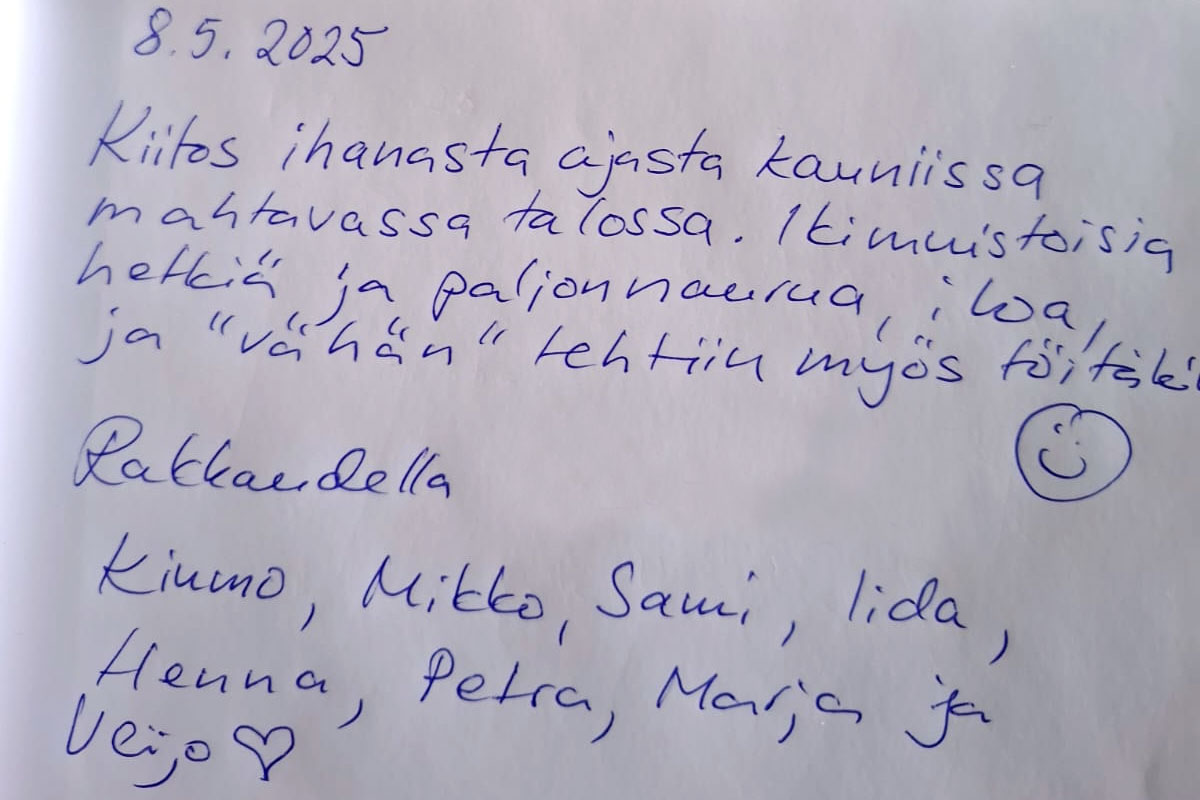 8.5.2025
Kiitos ihanasta ajasta kauniissa
mahtavassa talossa. Ikimuistoisia
hetkiä ja paljon naurua, iloa,
ja "vähän" tehtiin myös töitäki
Rakkaudella
Kimmo, Mikko, Sami, Iida,
Henna, Petra, Marja ja
Veijo